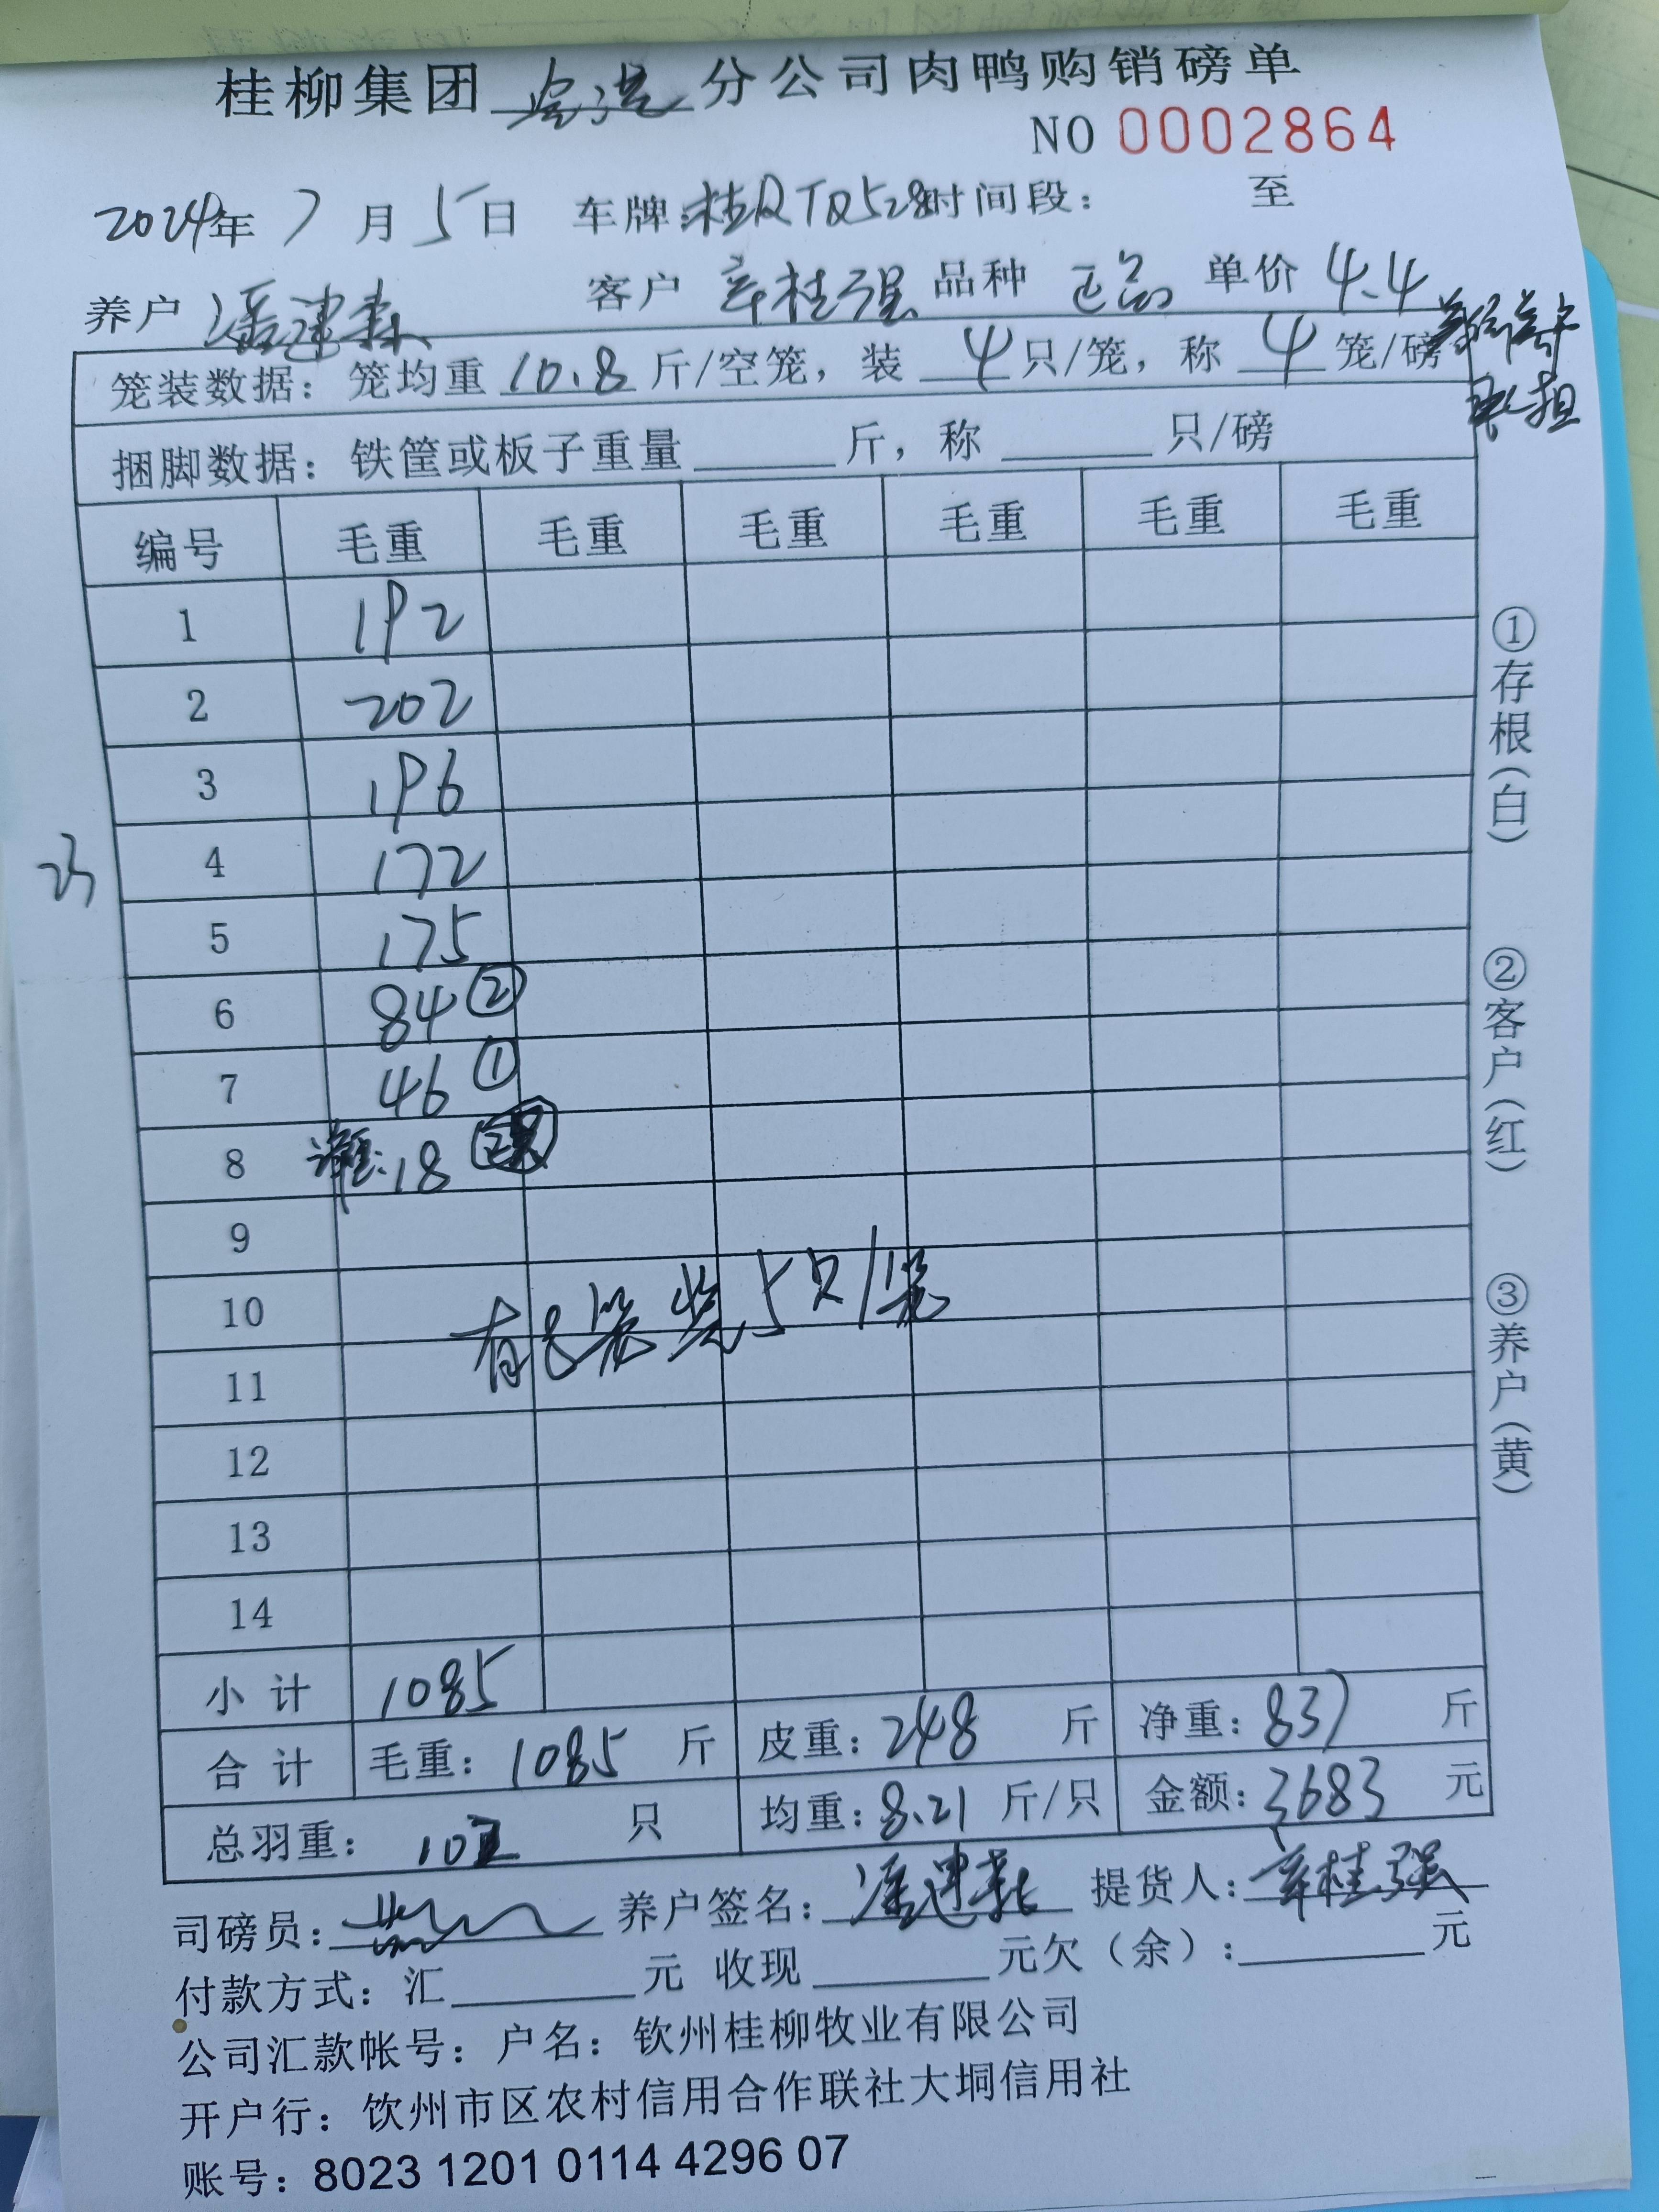 桂柳集团 合港 分公司肉鸭购销磅单
NO 0002864
2024年 7 月 5 日 车牌:桂QTQ528 时间段: 至
养户 潘建森 客户 辛桂强 品种 正品 单价 4.4
笼装数据: 笼均重 10.8 斤/空笼, 装 4 只/笼, 称 4 笼/磅
捆脚数据: 铁筐或板子重量 斤, 称 只/磅
编号 毛重 毛重 毛重 毛重 毛重 毛重
1 192
2 202
3 196
4 172
23
5 175
6 84 ②
7 46 ①
8 18
9
10
有 笼装5只/笼
11
12
13
14
小计 1085
合计 毛重: 1085 斤 皮重: 248 斤 净重: 837 斤
总羽重: 102 只 均重: 8.21 斤/只 金额: 3683 元
①存根(白)
②客户(红)
③养户(黄)
司磅员: 养户签名: 潘建森 提货人: 辛桂强
付款方式: 汇 元 收现 元欠(余): 元
公司汇款帐号: 户名: 钦州桂柳牧业有限公司
开户行: 钦州市区农村信用合作联社大垌信用社
账号: 8023 1201 0114 4296 07